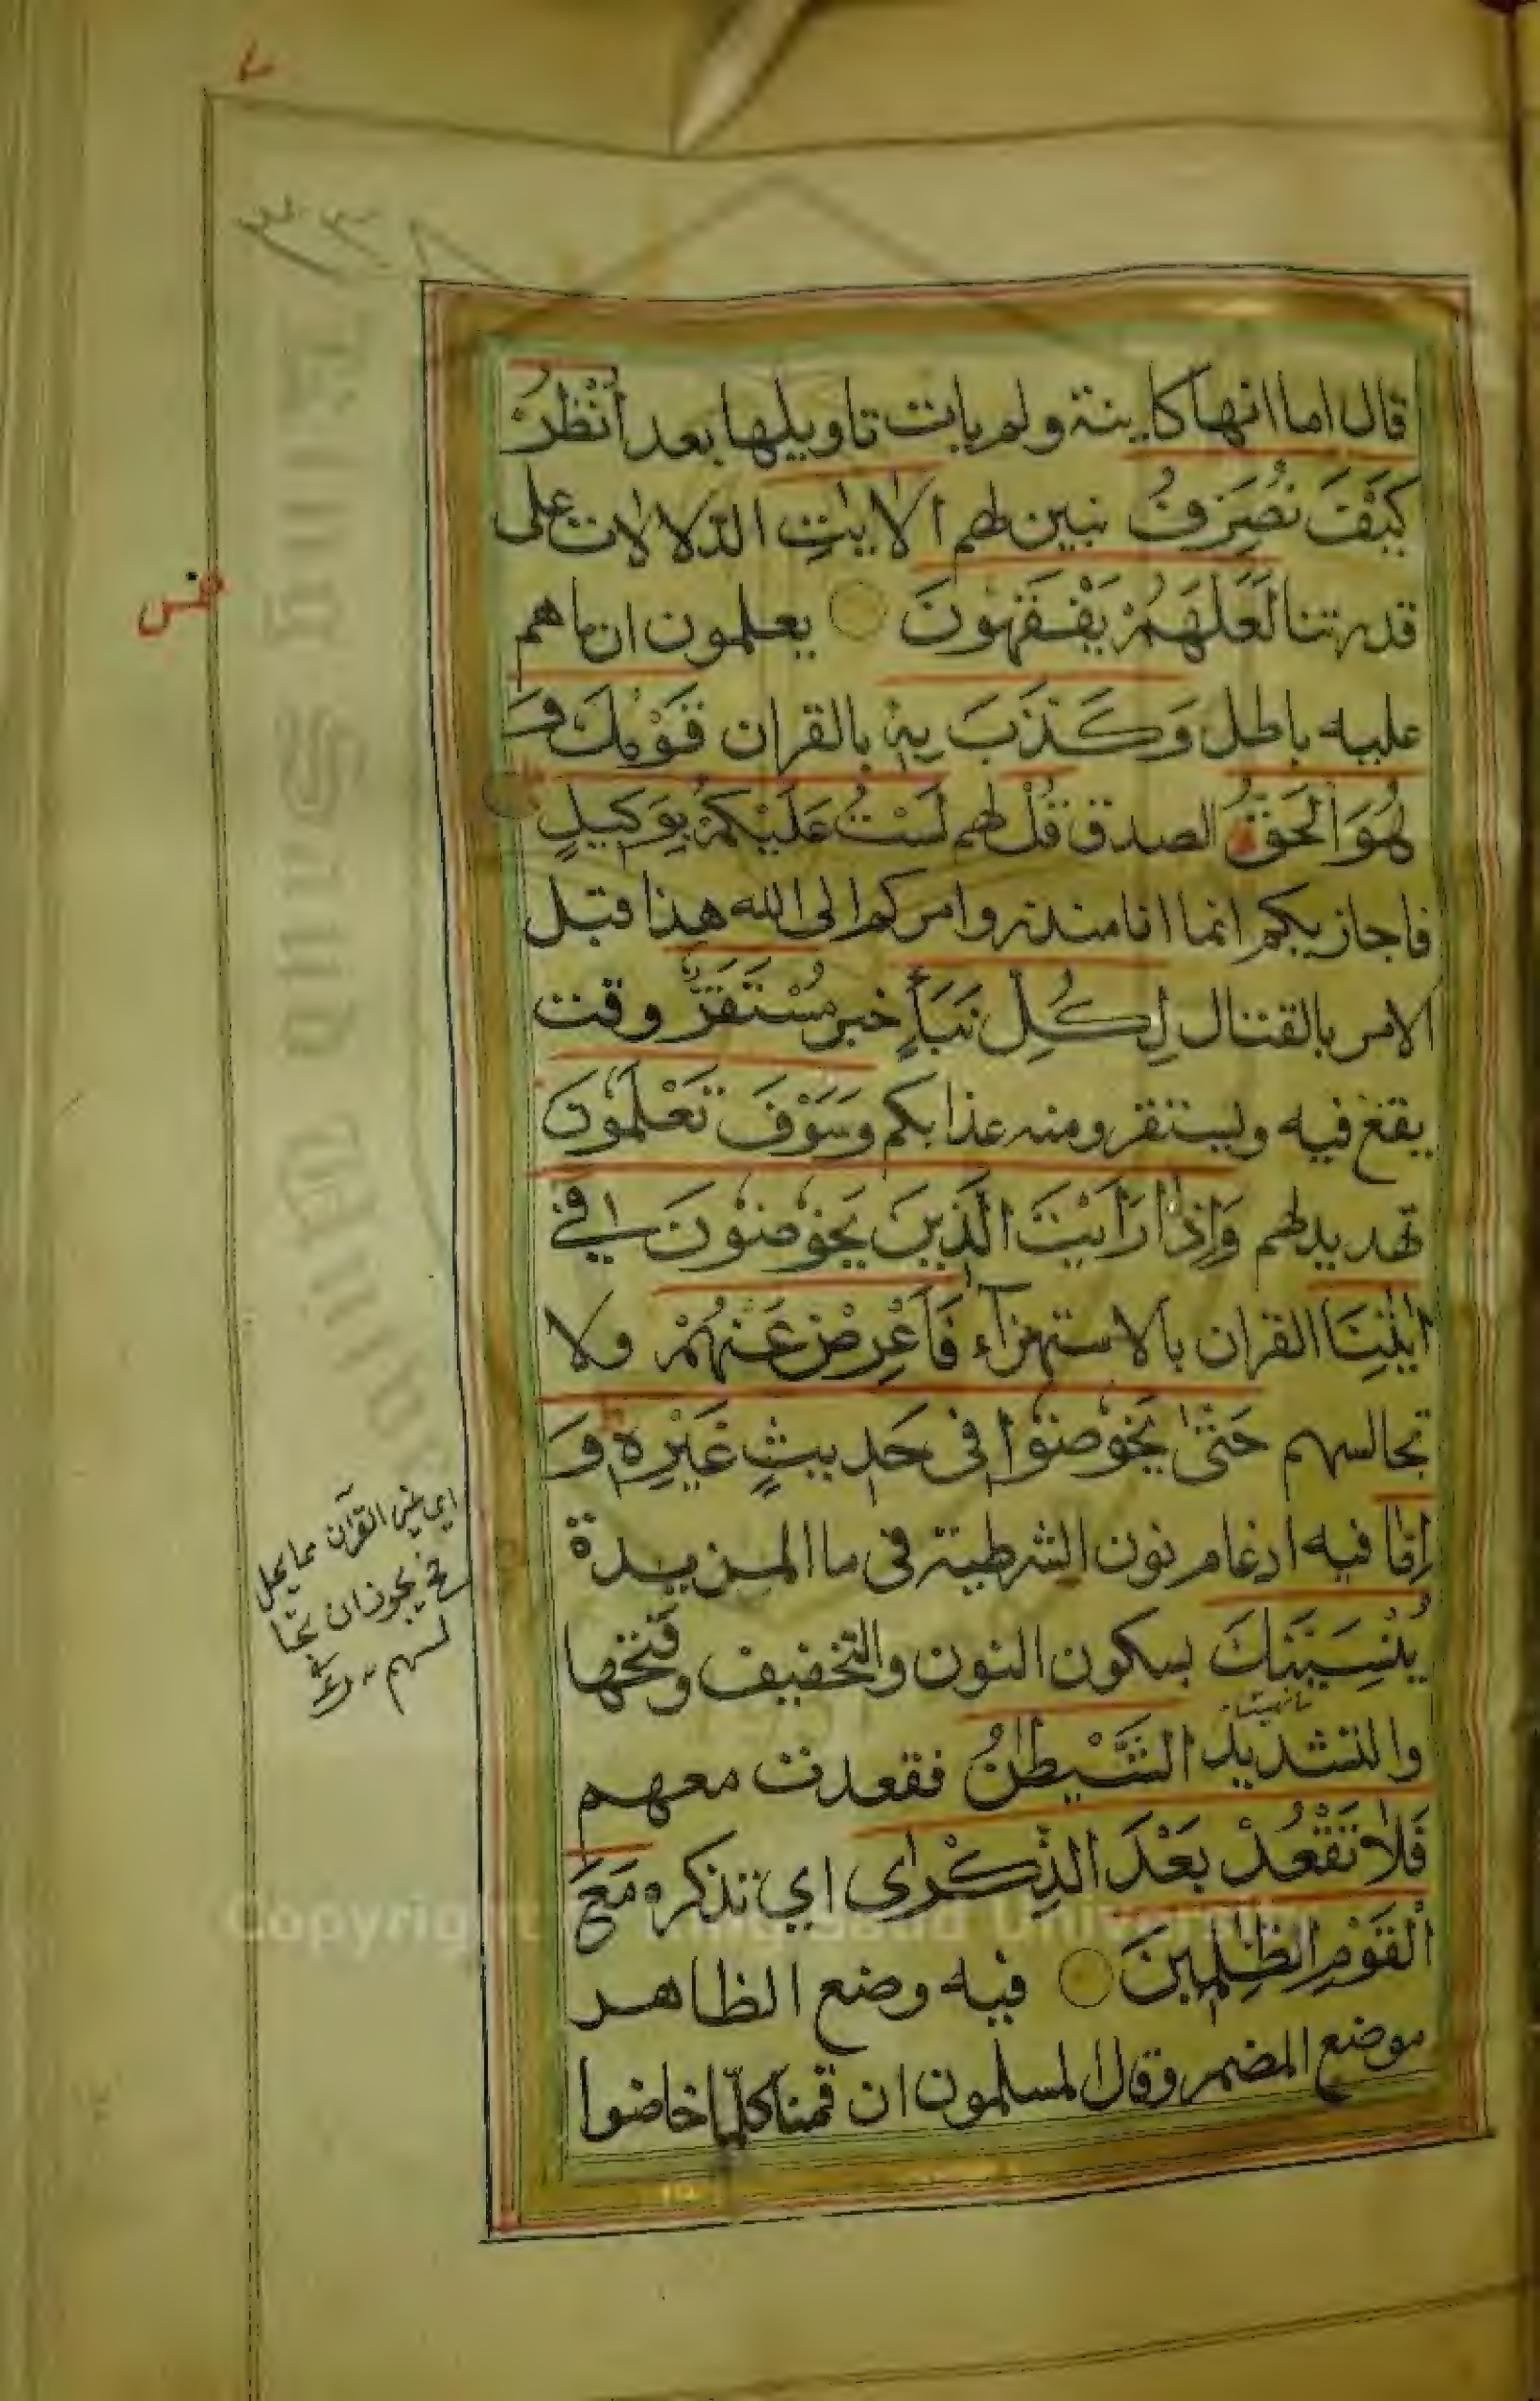 ٧
قال اما انها كاينة ولم يات تاويلها بعد اُنْظُرْ
كَيْفَ نُصَرِّفُ نبين لهم الاٰيٰتِ الدلالات على
قدرتنا لَعَلَّهُمْ يَفْقَهُونَ يعلمون ان ما هم
عليه باطل وَكَذَّبَ بِهٖ بالقران قَوْمُكَ وَ
هُوَ الْحَقُّ الصدق قُلْ لهم لَسْتُ عَلَيْكُمْ بِوَكِيلٍ
فاجازيكم انما انا منذر وامركم الى الله هذا قبل
الامر بالقتال لِكُلِّ نَبَأٍ خبر مُسْتَقَرٌّ وقت
يقع فيه ويستقر ومنه عذابكم وَسَوْفَ تَعْلَمُونَ
تهديد لهم وَاِذَا رَاَيْتَ الَّذِينَ يَخُوضُونَ فِي
اٰيٰتِنَا القران بالاستهزاء فَاَعْرِضْ عَنْهُمْ ولا
تجالسهم حَتّٰى يَخُوضُوا فِى حَدِيثٍ غَيْرِهٖ وَ
اِمَّا فيه ادغام نون الشرطية فى ما المزيدة
يُنْسِيَنَّكَ بسكون النون والتخفيف وفتحها
والتشديد الشَّيْطٰنُ فقعدت معهم
فَلَا تَقْعُدْ بَعْدَ الذِّكْرٰى اي تذكره مَعَ
الْقَوْمِ الظّٰلِمِينَ فيه وضع الظاهر
موضع المضمر وقال المسلمون ان قمنا كلما خاضوا
اي غير القرآن مما يحل
يجوز ان تجا
لسهم
Copyright © King Saud University